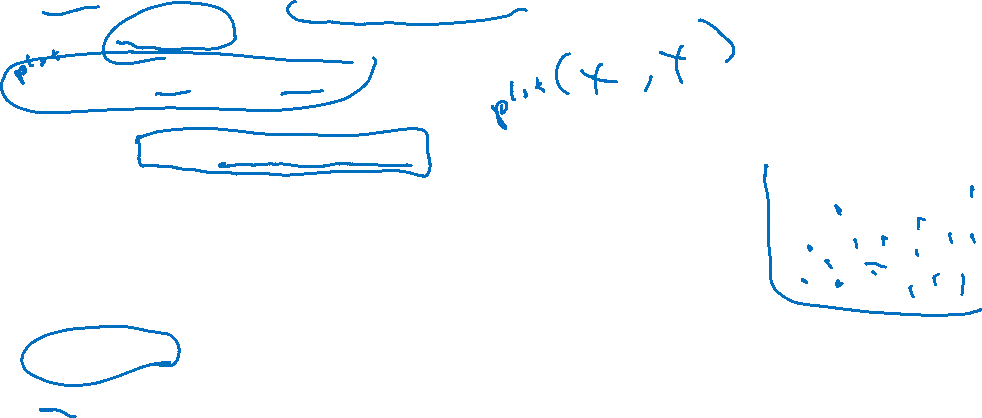 plot
plot(x, y)